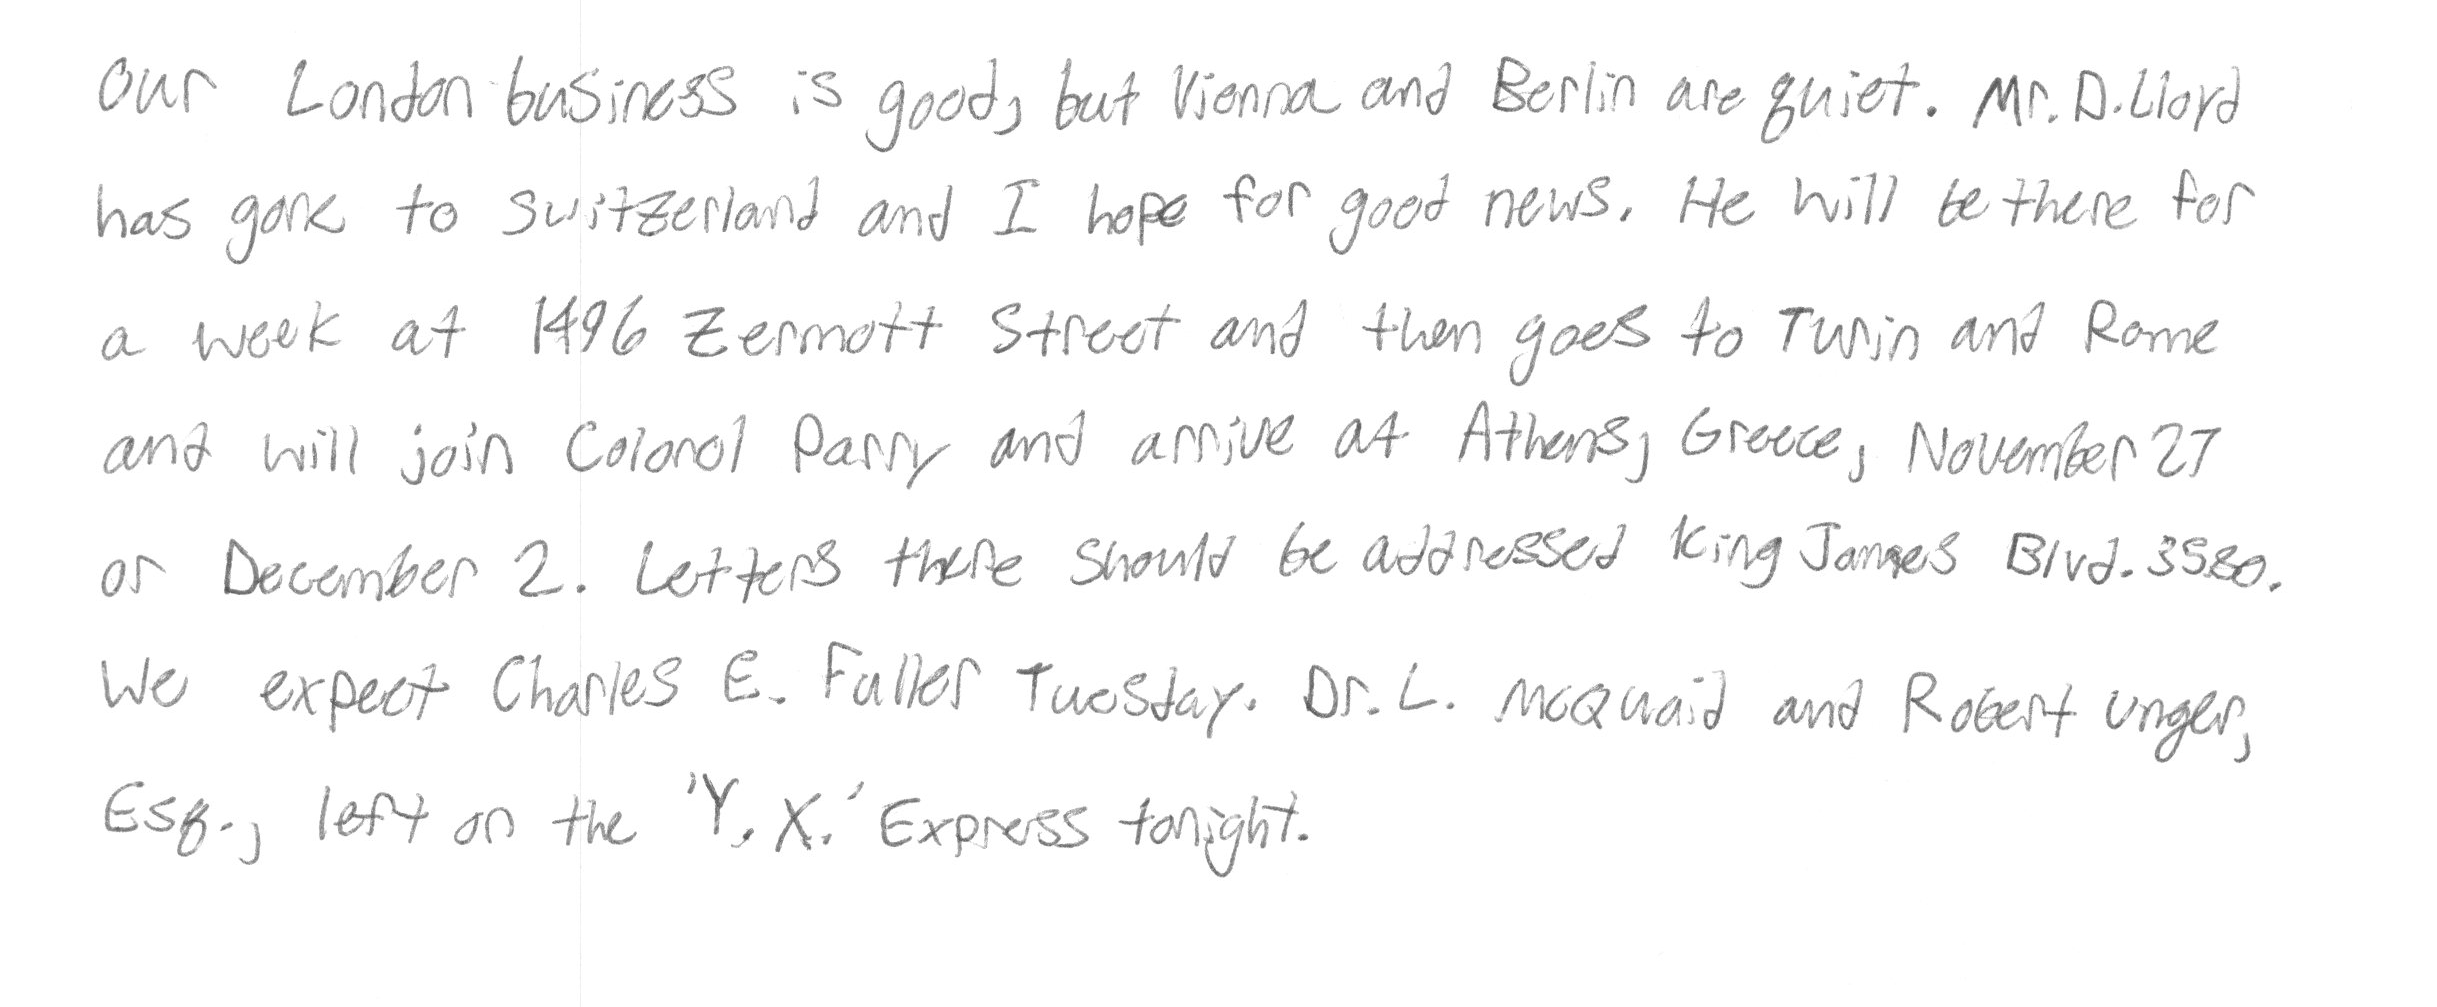 Our London business is good, but Vienna and Berlin are quiet. Mr. D. Lloyd
has gone to Switzerland and I hope for good news. He will be there for
a week at 1496 Zermott Street and then goes to Turin and Rome
and will join Colonel Parry and arrive at Athens, Greece, November 27
or December 2. Letters there should be addressed King James Blvd. 3580.
We expect Charles E. Fuller Tuesday. Dr. L. McQuaid and Robert Unger,
Esq., left on the 'Y. X.' Express tonight.